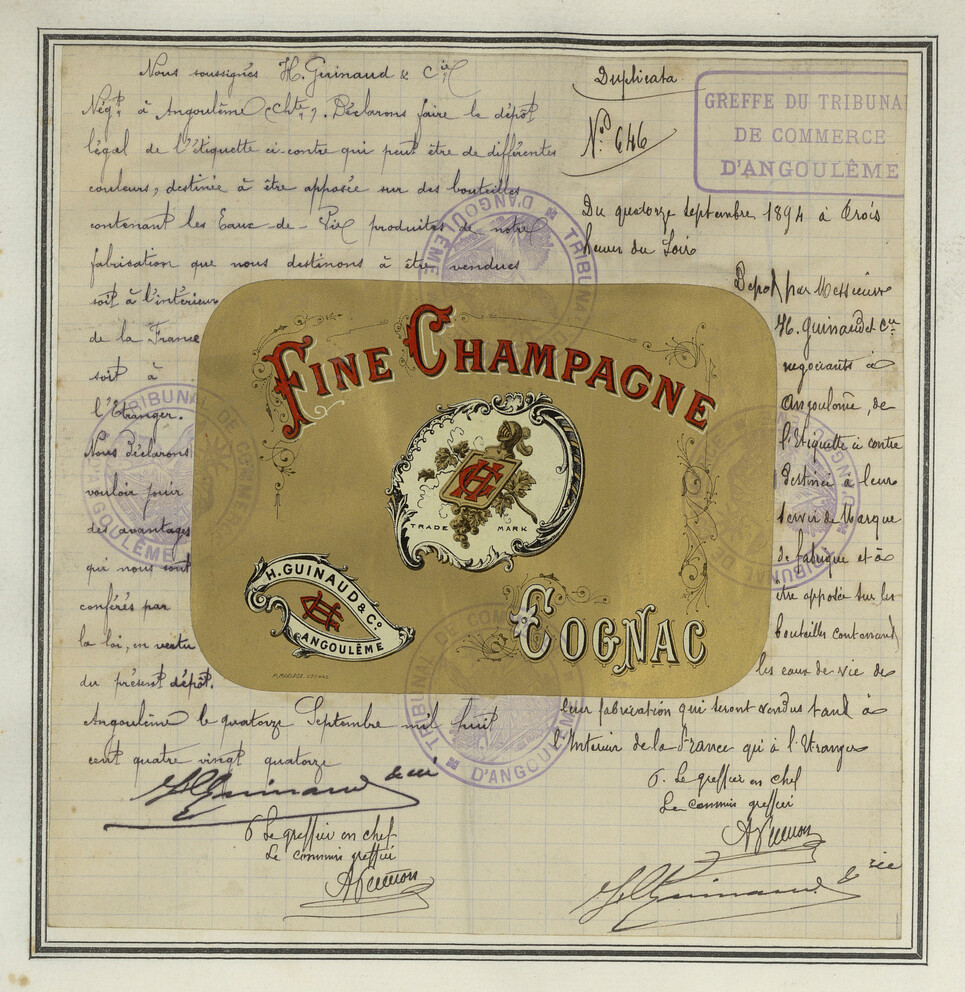 Nous soussignés H. Guinaud & Cie
Négts à Angoulême (Chte). Déclarons faire le dépôt
légal de l'étiquette ci-contre qui peut être de différentes
couleurs, destinée à être apposée sur des bouteilles
contenant les Eaux-de-Vie produites de notre
fabrication que nous destinons à être vendues
soit à l'intérieur
de la France
soit à
l'Etranger.
Nous déclarons
vouloir jouir
des avantages
qui nous sont
conférés par
la loi, en vertu
du présent dépôt.
Angoulême le quatorze Septembre mil huit
cent quatre vingt quatorze
H Guinaud & cie
Le greffier en chef
Le commis greffier
Duplicata
No. 646
GREFFE DU TRIBUNA
DE COMMERCE
D'ANGOULÊME
Du quatorze septembre 1894 à trois
heures du soir
Depot par Messieurs
H. Guinaud et Cie
negociants à
Angoulême, de
l'Etiquette ci contre
destinée à leur
servir de Marque
de fabrique et à
être apposée sur les
bouteilles contenant
les eaux de vie de
leur fabrication qui seront vendus tant à
l'Interieur de la France qu'à l'Etranger
Le greffier en chef
Le commis greffier
H Guinaud & cie
FINE CHAMPAGNE
TRADE MARK
H. GUINAUD & Co
ANGOULÊME
COGNAC
TRIBUNAL DE COMMERCE
D'ANGOULÊME
TRIBUNAL DE COMMERCE
D'ANGOULÊME
TRIBUNAL DE COMMERCE
D'ANGOULÊME
TRIBUNAL DE COMMERCE
D'ANGOULÊME